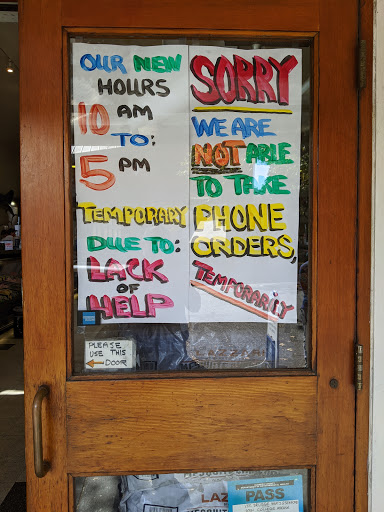 OUR NEW
HOURS
10 AM
TO:
5 PM
TEMPORARY
DUE TO:
LACK
OF
HELP
SORRY
WE ARE
NOT ABLE
TO TAKE
PHONE
ORDERS,
TEMPORARILY
PLEASE
USE THIS
DOOR
LAZ
PASS